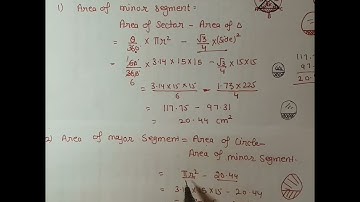 1) Area of minor segment =
Area of Sector - Area of Δ
= θ/360 × πr² - √3/4 × (Side)²
= 60/360 × 3.14 × 15 × 15 - √3/4 × 15 × 15
6
= 3.14 × 15 × 15 / 6 - 1.73 × 225 / 4
= 117.75 - 97.31
= 20.44 cm²
2) Area of major Segment = Area of Circle -
Area of minor segment.
= πr² - 20.44
= 3.14 × 15 × 15 - 20.44